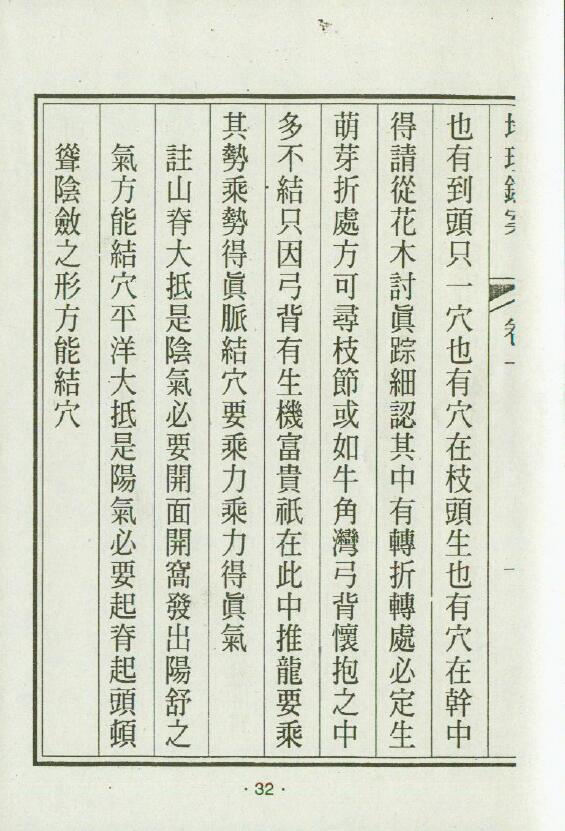 也有到頭只一穴也有穴在枝頭生也有穴在幹中
得請從花木討眞踪細認其中有轉折轉處必定生
萌芽折處方可尋枝節或如牛角灣弓背懷抱之中
多不結只因弓背有生機富貴祇在此中推龍要乘
其勢乘勢得眞脈結穴要乘力乘力得眞氣
註山脊大抵是陰氣必要開面開窩發出陽舒之
氣方能結穴平洋大抵是陽氣必要起脊起頭頓
聳陰斂之形方能結穴
·32·